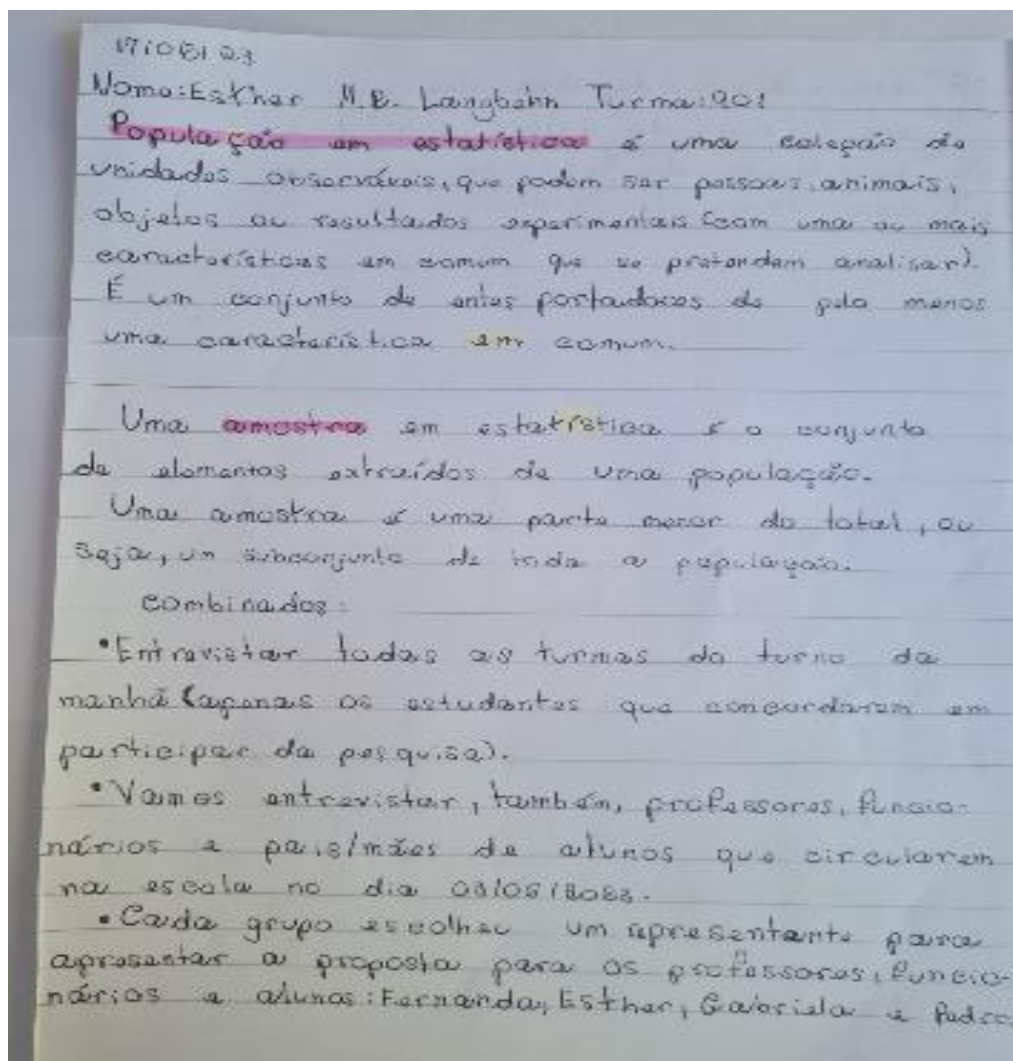 Nome: Esther M.B. Langbehn Turma: 901
População em estatística é uma coleção de
unidades observáveis, que podem ser pessoas, animais,
objetos ou resultados experimentais (com uma ou mais
características em comum que se pretendem analisar).
É um conjunto de entes portadores de pelo menos
uma característica em comum.
Uma amostra em estatística é o conjunto
de elementos extraídos de uma população.
Uma amostra é uma parte menor do total, ou
seja, um subconjunto de toda a população.
combinados:
•Entrevistar todas as turmas do turno da
manhã (apenas os estudantes que concordarem em
participar da pesquisa).
•Vamos entrevistar, também, professores, funcio-
nários e pais/mães de alunos que circularem
na escola no dia
•Cada grupo escolheu um representante para
apresentar a proposta para os professores, funcio-
nários e alunos: Fernanda, Esther, Gabriela e Pedro.